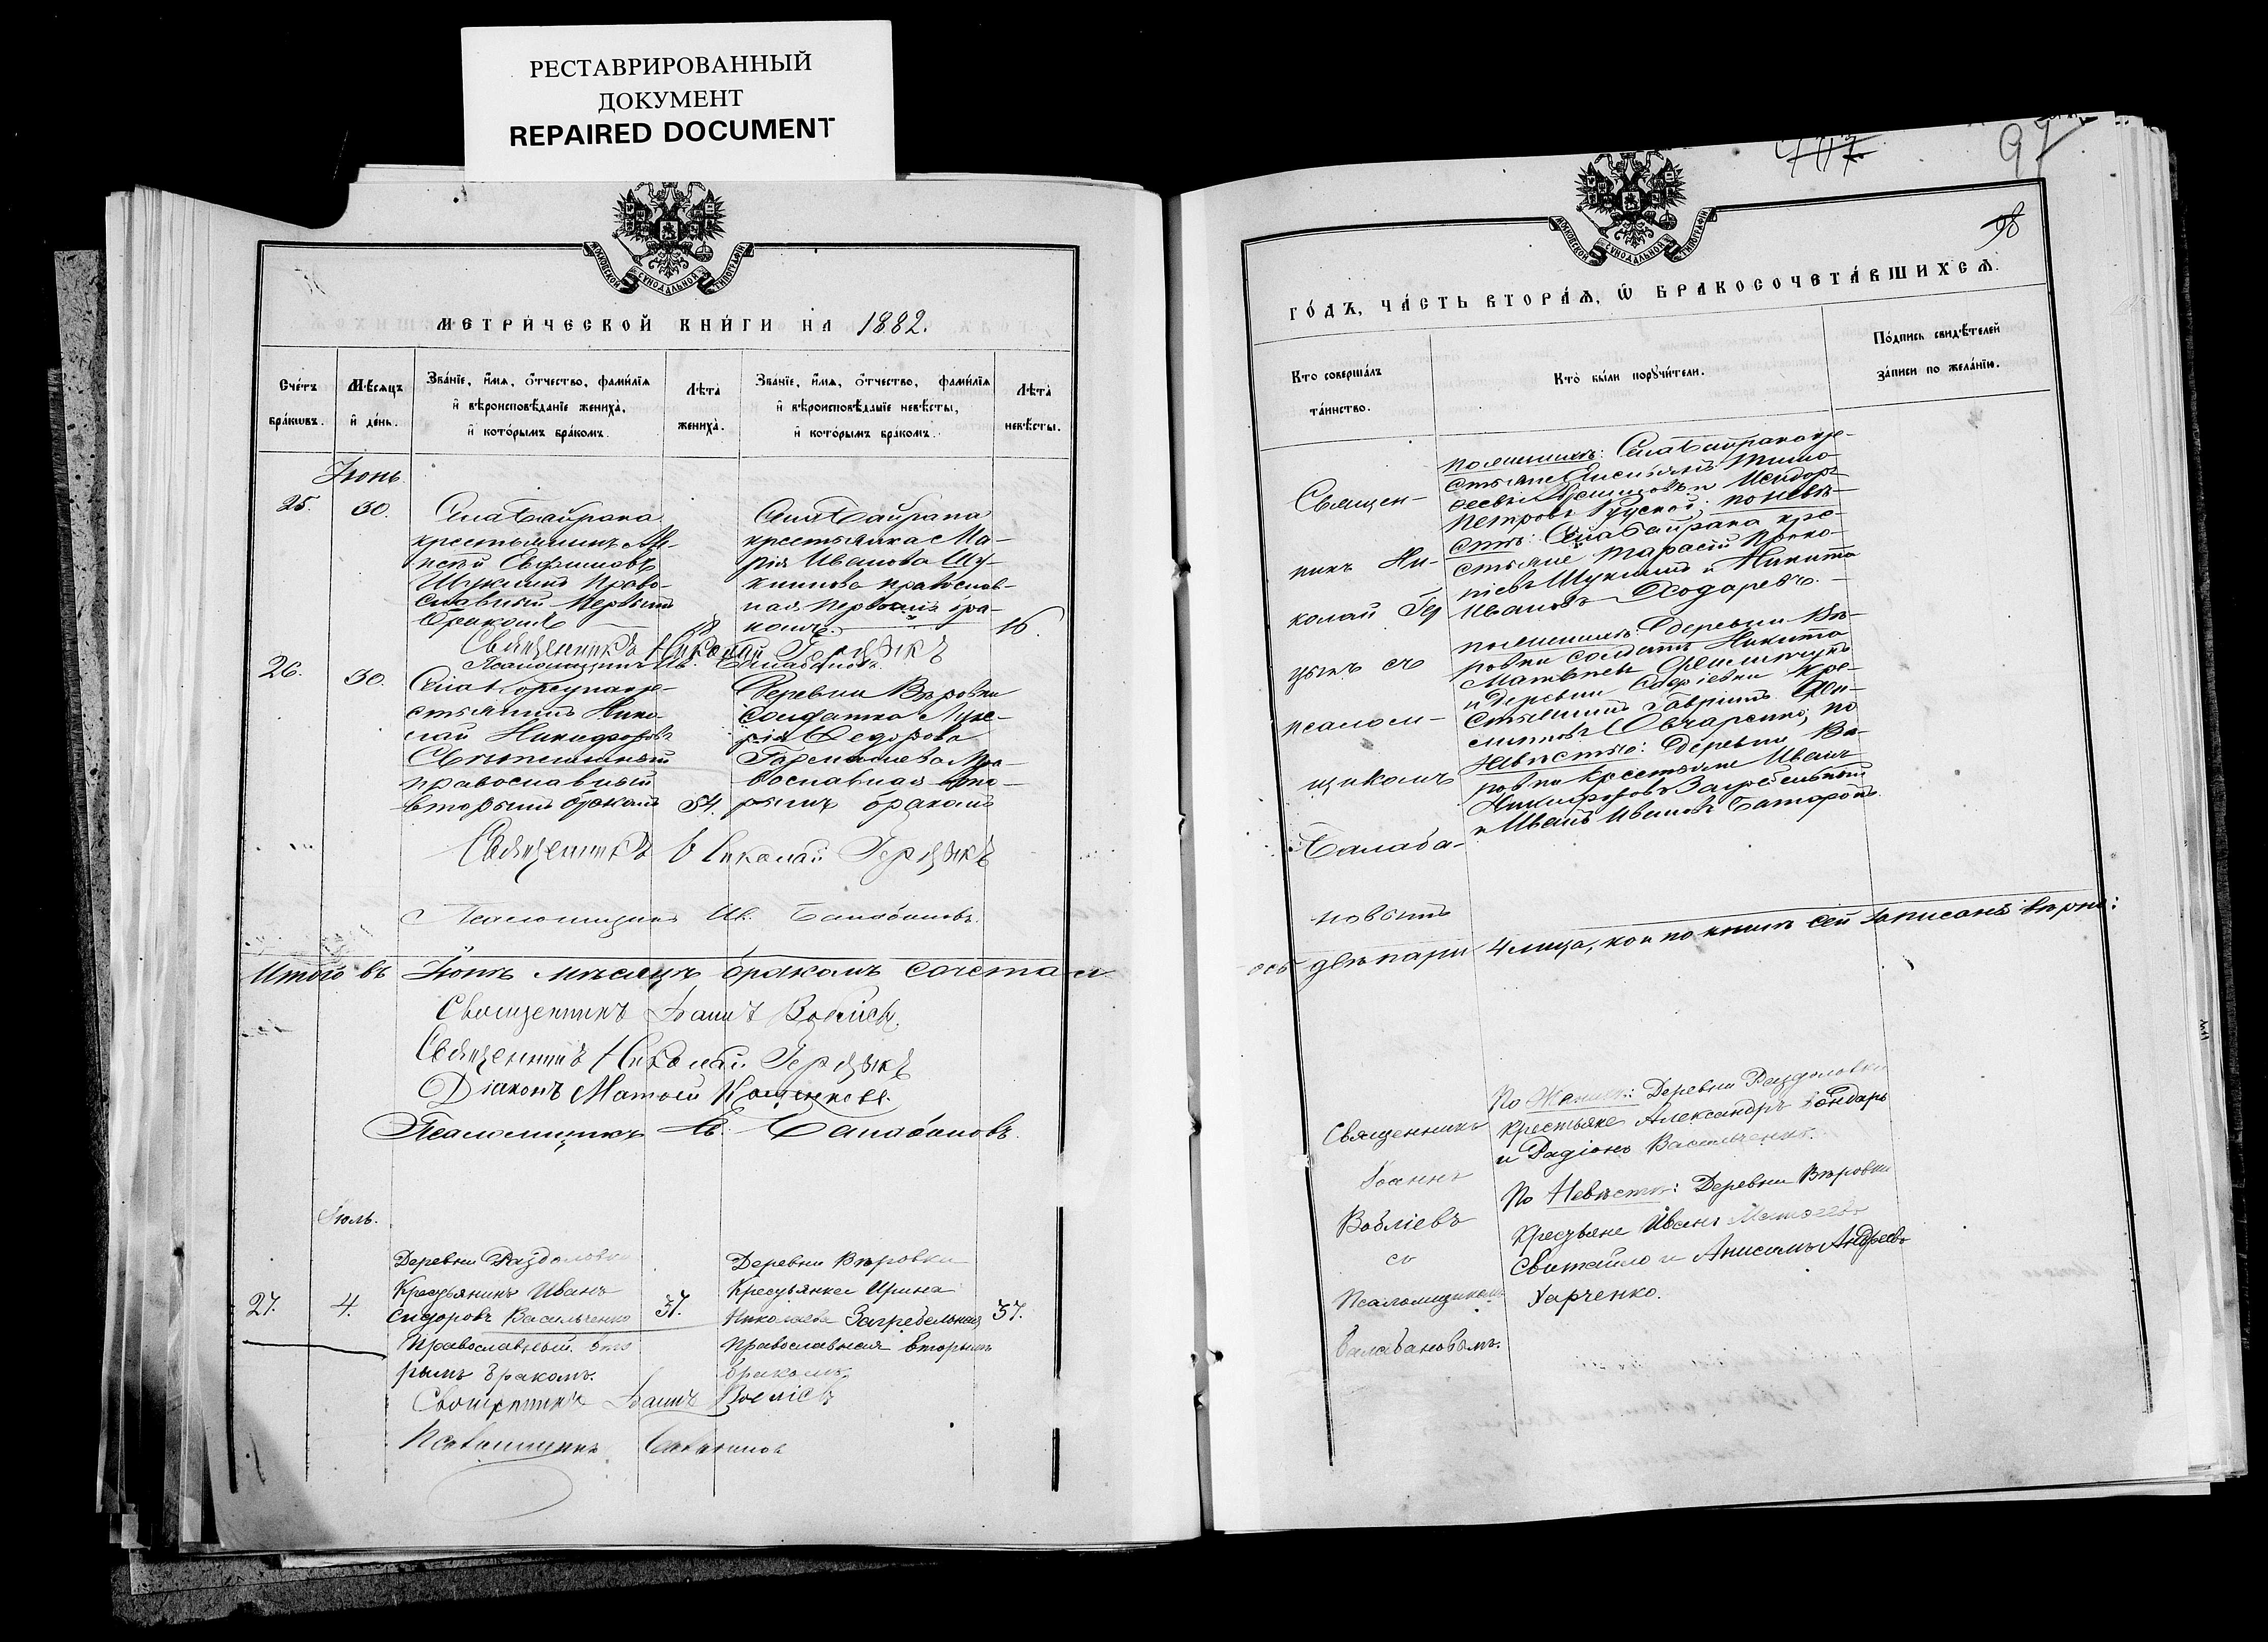 РЕСТАВРИРОВАННЫЙ
ДОКУМЕНТ
REPAIRED DOCUMENT
МОСКОВСКОЙ СѴНОДАЛЬНОЙ ТИПОГРАФІИ
МЕТРИ́ЧЕСКОЙ КНИ́ГИ НА 1882.
Сче́тъ бра́кѡвъ.
Мѣ́сяцъ и́ де́нь.
Зва́нїе, и́мя, о́тчество, фами́лїя
и́ вѣроисповѣ́данїе жениха̀,
и́ кото́рымъ бра́комъ.
Лѣ́та жениха̀.
Зва́нїе, и́мя, о́тчество, фами́лїя
и́ вѣроисповѣ́данїе невѣ́сты,
и́ кото́рымъ бра́комъ.
Лѣ́та невѣ́сты.
Іюнь
25.
30.
Села Байрака
крестьянинъ
Евфимовъ
Шукинъ Право-
славный первымъ
бракомъ
18
Села Байрака
крестьянка Ма-
рія Иванова Шу-
кинова православ-
ная первымъ бра-
комъ.
16.
Священникъ Николай Герцыкъ
Псаломщикъ Ив. Балабановъ.
26.
30.
Села Корсуна кре-
стьянинъ Нико-
лай Никифоровъ
православный
вторымъ бракомъ
54.
Деревни Вѣровки
Солдатка Луке-
рія Федорова
Пра-
вославная вто-
рымъ бракомъ
Священникъ Николай Герцыкъ
Псаломщикъ Ив. Балабановъ.
Итого въ Іюнѣ мѣсяцѣ бракомъ сочетал
Священникъ Іоаннъ Вобліевъ.
Священникъ Николай Герцыкъ
Діаконъ Матѳей
Псаломщикъ Ив. Балабановъ.
Іюль.
27.
4.
Деревни Раздоловки
Крестьянинъ Иванъ
Сидоровъ Васильченко
Православный вто
рымъ бракомъ.
37.
Деревни Вѣровки
Крестьянка Ирина
Николаева Загребельная
Православная вторымъ
бракомъ.
37.
Священникъ Іоаннъ Вобліевъ
Псаломщикъ Балабановъ
707
97
98
МОСКОВСКОЙ СѴНОДАЛЬНОЙ ТИПОГРАФІИ
ГО́ДЪ, ЧА́СТЬ ВТОРА́Я, Ѡ БРАКОСОЧЕТА́ВШИХСЯ.
Кто соверша́лъ
та́инство.
Кто̀ бы́ли порꙋчи́тели.
По́дпись свидѣ́телей
за́писи по жела́нїю.
Священ-
никъ Ни-
колай Гер
цыкъ съ
псалом-
щикомъ
Балаба-
новымъ
по женихѣ: Села Байрака кре-
стьяне Тимо-
ѳеевъ и Исидоръ
Петровъ по невѣ-
стѣ: Села Байрака кре-
стьяне Тарасій Проко-
піевъ Шукинъ и Никита
Ивановъ Ходаревъ.
по женихѣ: Деревни Вѣ-
ровки солдатъ Никита
Матвѣевъ
и деревни Андріевки Кре-
стьянинъ Гавріилъ
Овчаренко; по
невѣстѣ: деревни Вѣ-
ровки крестьяне Иванъ
Никифоровъ Загребельный
и Иванъ Ивановъ
ось двѣ пари 4 лица, кои по книгѣ сей записаны вѣрно:
Священникъ
Іоаннъ
Вобліевъ
съ
Псаломщикомъ
Балабановымъ.
По Женихѣ: Деревни Раздоловки
Крестьяне Александръ Бондарь
и Радіонъ Васильченко.
По Невѣстѣ: Деревни Вѣровки
Крестьяне Иванъ
Свитайло и Анисимъ Андреевъ
Харченко.